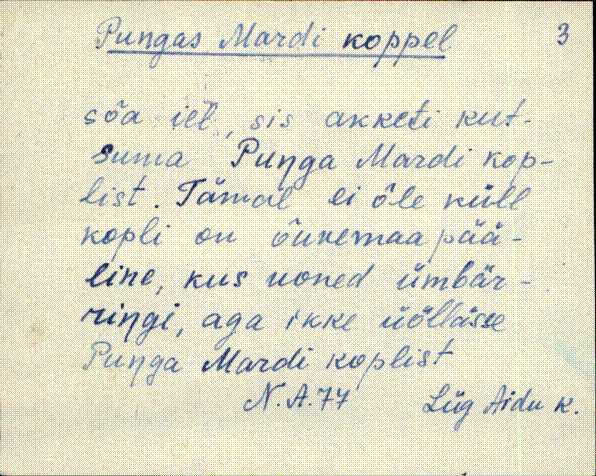 Puŋgas Mardi koppel 3
sõa iel, sis akketi kut-
suma Puŋga Mardi kop-
list. Tämäl ei õle küll
kopli on õuremaapää-
line, kus uoned ümbär-
riŋgi, aga ikke üöllässe
Puŋga Mardi koplist
N.A.77 Lüg Aidu k.